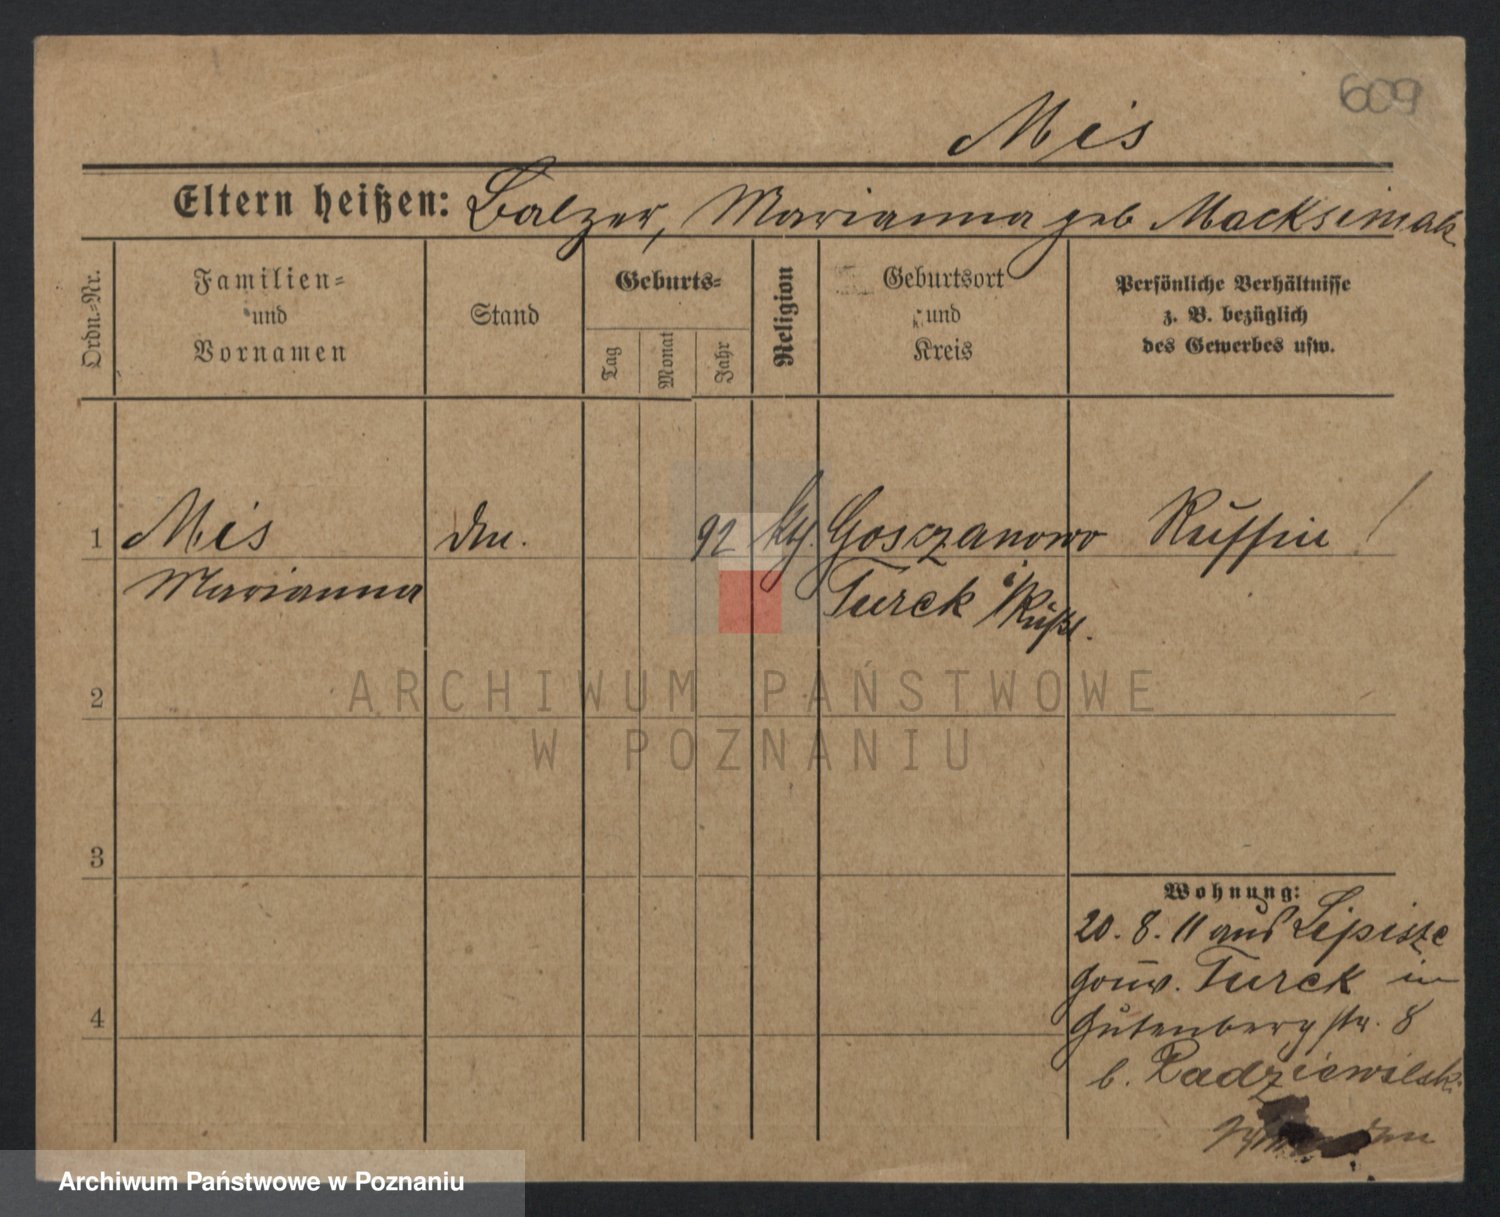 609
Mis
Eltern heißen: Balzer, Marianna geb Macksimak
Ordn.-Nr.
Familien- und Vornamen
Stand
Geburts-
Tag
Monat
Jahr
Religion
Geburtsort und Kreis
Persönliche Verhältnisse z. B. bezüglich des Gewerbes usw.
1 Mis 92 Goszanowo Russin
Marianna Turek i/Rußl.
2
ARCHIWUM PAŃSTWOWE
W POZNANIU
3
Wohnung:
20. 8. 11 aus Lipisze
Gouv. Turek in
4
Gutenbergstr. 8
b. Radziewilski
Archiwum Państwowe w Poznaniu